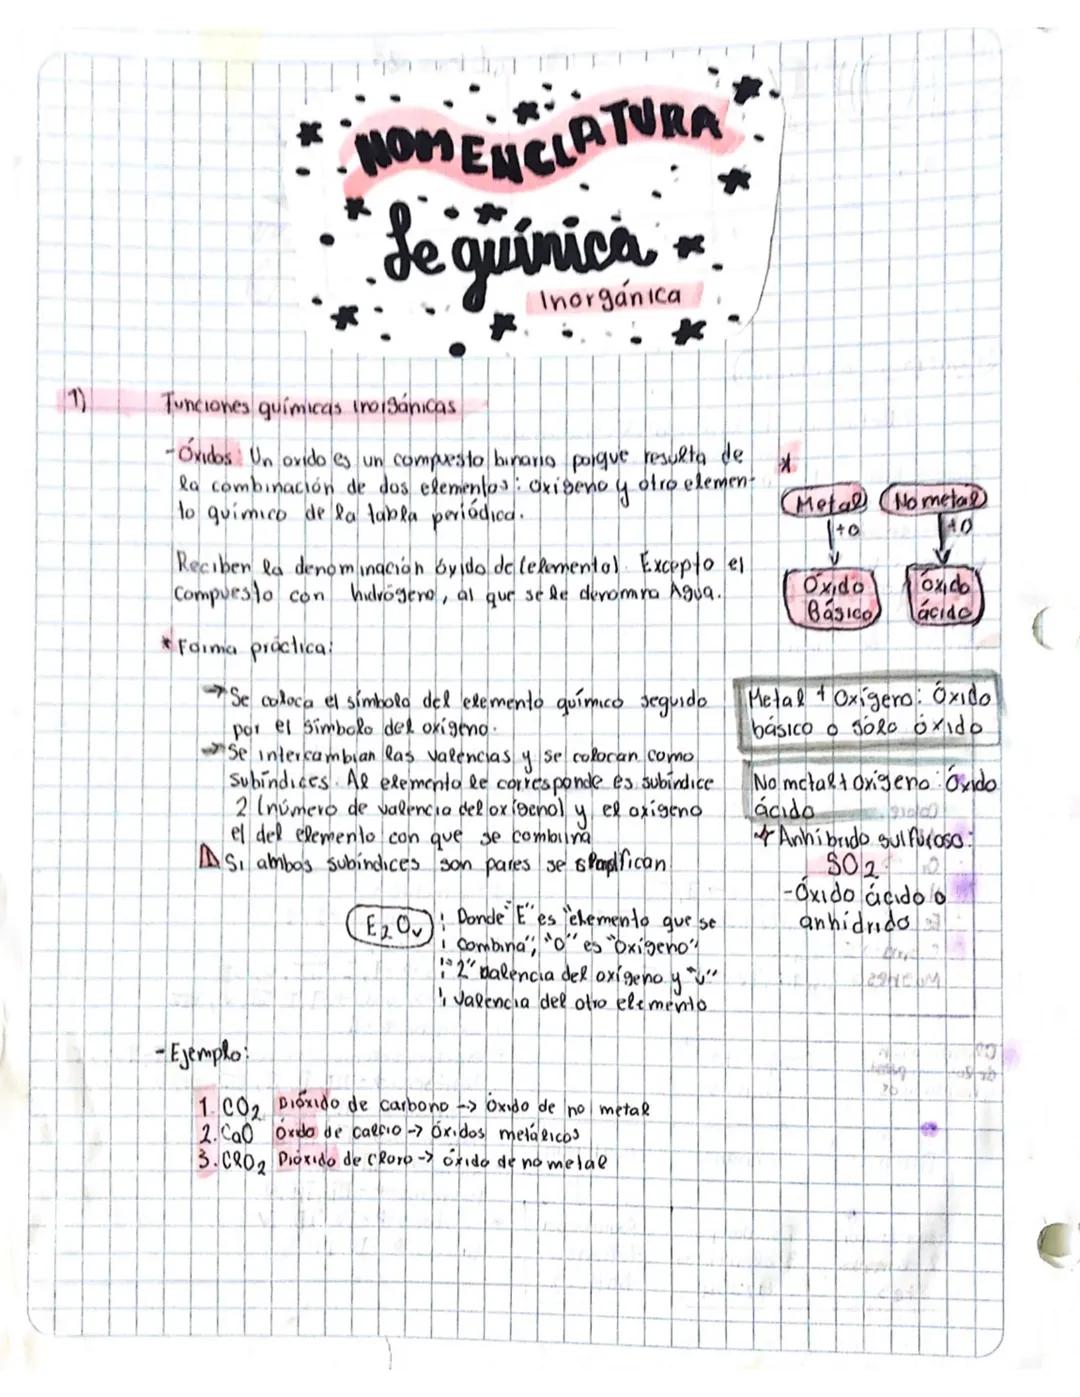 NOMENCLATURA
de química
Inorgánica
1) Funciones químicas inorgánicas
- Óxidos: Un oxido es un compuesto binario porque resulta de
la combinación de dos elementos: oxigeno y otro elemen-
to químico de la tabla periódica.
Reciben la denominación óxido de (elemento). Excepto el
compuesto con hidrógeno, al que se le denomina Agua.
* Forma práctica:
→ Se coloca el símbolo del elemento químico seguido
por el símbolo del oxígeno.
→ Se intercambian las valencias y se colocan como
subíndices. Al elemento le corresponde es subíndice
2 (número de valencia del oxígeno) y el oxígeno
el del elemento con que se combina
⚠ Si ambos subíndices son pares se simplifican
E₂Oᵥ
Donde "E" es "elemento que se
combina", "O" es "Oxígeno"
"2" valencia del oxígeno y "v"
valencia del otro elemento
- Ejemplo:
1. CO₂ Dióxido de carbono -> óxido de no metal
2. CaO óxido de calcio -> Óxidos metálicos
3. ClO₂ Dióxido de cloro -> óxido de no metal
*
Metal No metal
+O +O
Óxido Básico
óxido ácido
Metal + Oxígeno: Óxido
básico o sólo óxido
No metal + Oxígeno: Óxido
ácido
* Anhibrido sulfuroso:
SO₂
- Óxido ácido o
anhídrido